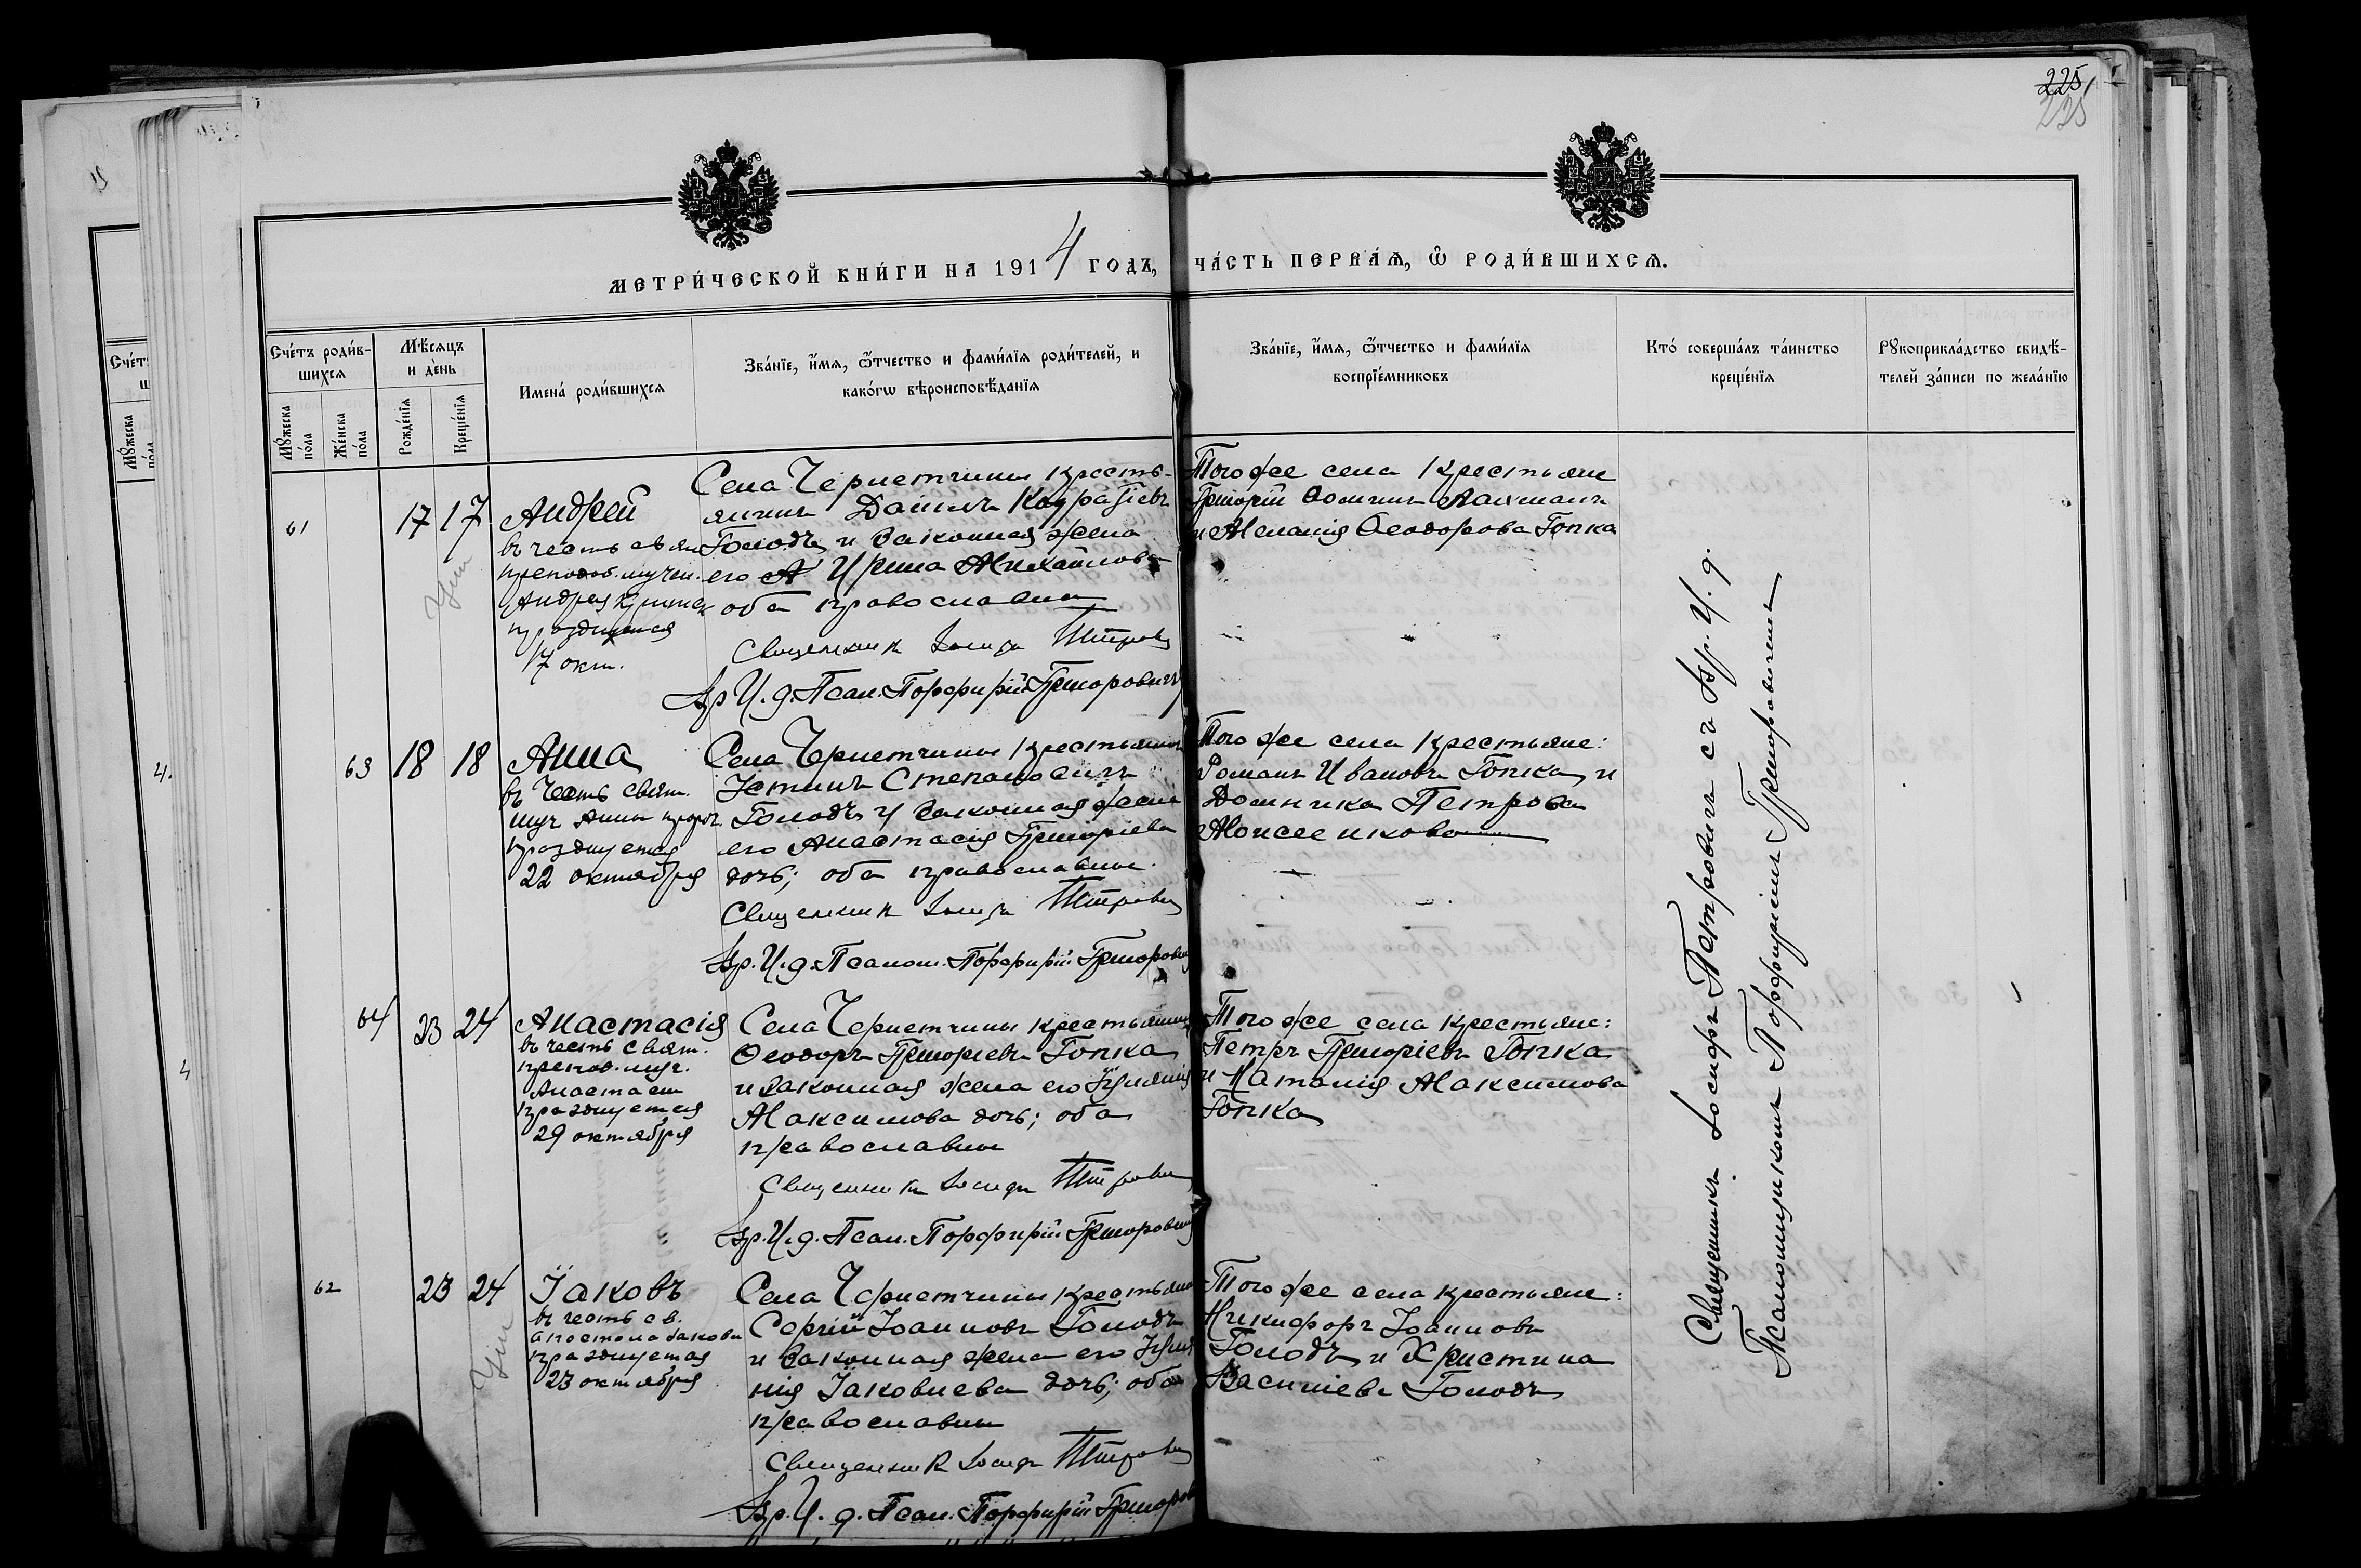 225
225
МЕТРИ́ЧЕСКОЙ КНИ́ГИ НА 1914 ГОДЪ, ЧА́СТЬ ПЕРВА́Я, Ѿ РОДИ́ВШИХСЯ.
Сче́тъ роди́в-
шихся
Мꙋ́жеска
по́ла
Же́нска
по́ла
Мѣ́сяцъ
и де́нь
Рожде́нїя
Креще́нїя
Имена́ роди́вшихся
Зва́нїе, и́мя, ѻ҆́тчество и фами́лїя роди́телей, и
како́гѡ вѣроисповѣ́данїя
Зва́нїе, и́мя, ѻ҆́тчество и фами́лїя
воспрїе́мниковъ
Кто́ соверша́лъ та́инство
креще́нїя
Рꙋкоприкла́дство свидѣ́-
телей за́писи по жела́нїю
61
17 17
Андрей
въ честь свят
преподоб. мучен.
Андрея Критск
празднуется
17 окт.
Села Чернетчины кресть-
янинъ Даніилъ
Голодъ и законная жена
его Ирина Михайлова
оба православны
Священникъ Іосифъ Петровъ
Вр. И. д. Псал. Порфирій Григоровичъ
Того же села крестьяне
Григорій Лахманъ
и Меланія Ѳеодорова Гопка
63
18 18
Анна
въ честь свят.
муч Анны
празднуется
22 октября
Села Чернетчины крестьянинъ
Устинъ Степановичъ
Голодъ и законная жена
его Анастасія Григоріева
дочь; оба православны.
Священникъ Іосифъ Петровъ
Вр. И. д. Псалом. Порфирій Григоровичъ
Того же села крестьяне:
Романъ Ивановъ Гопка и
Домника Петрова
Моисеенкова
64
23 24
Анастасія
въ честь свят.
препод. муч.
Анастасіи
празднуется
29 октября
Села Чернетчины крестьянинъ
Ѳеодоръ Григоріевъ Гопка
и законная жена его Іуліанія
Максимова дочь; оба
православны
Священникъ Іосифъ Петровъ
Вр. И. д. Псал. Порфирій Григоровичъ
Того же села крестьяне:
Петръ Григоріевъ Гопка
и Наталія Максимова
Гопка
62
23 24
Іаковъ
въ честь св.
апостола Іакова
празднуется
23 октября
Села Чернетчины крестьянинъ
Сергій Іоанновъ Голодъ
и законная жена его Іуліа
нія Іаковлева дочь; оба
православны
Священникъ Іосифъ Петровъ
Вр. И. д. Псал. Порфирій Григоров
Того же села крестьяне:
Никифоръ Іоанновъ
Голодъ и Христина
Василіева Голодъ
Священникъ Іосифъ Петровичъ съ Вр. И. д.
Псаломщикомъ Порфиріемъ Григоровичемъ